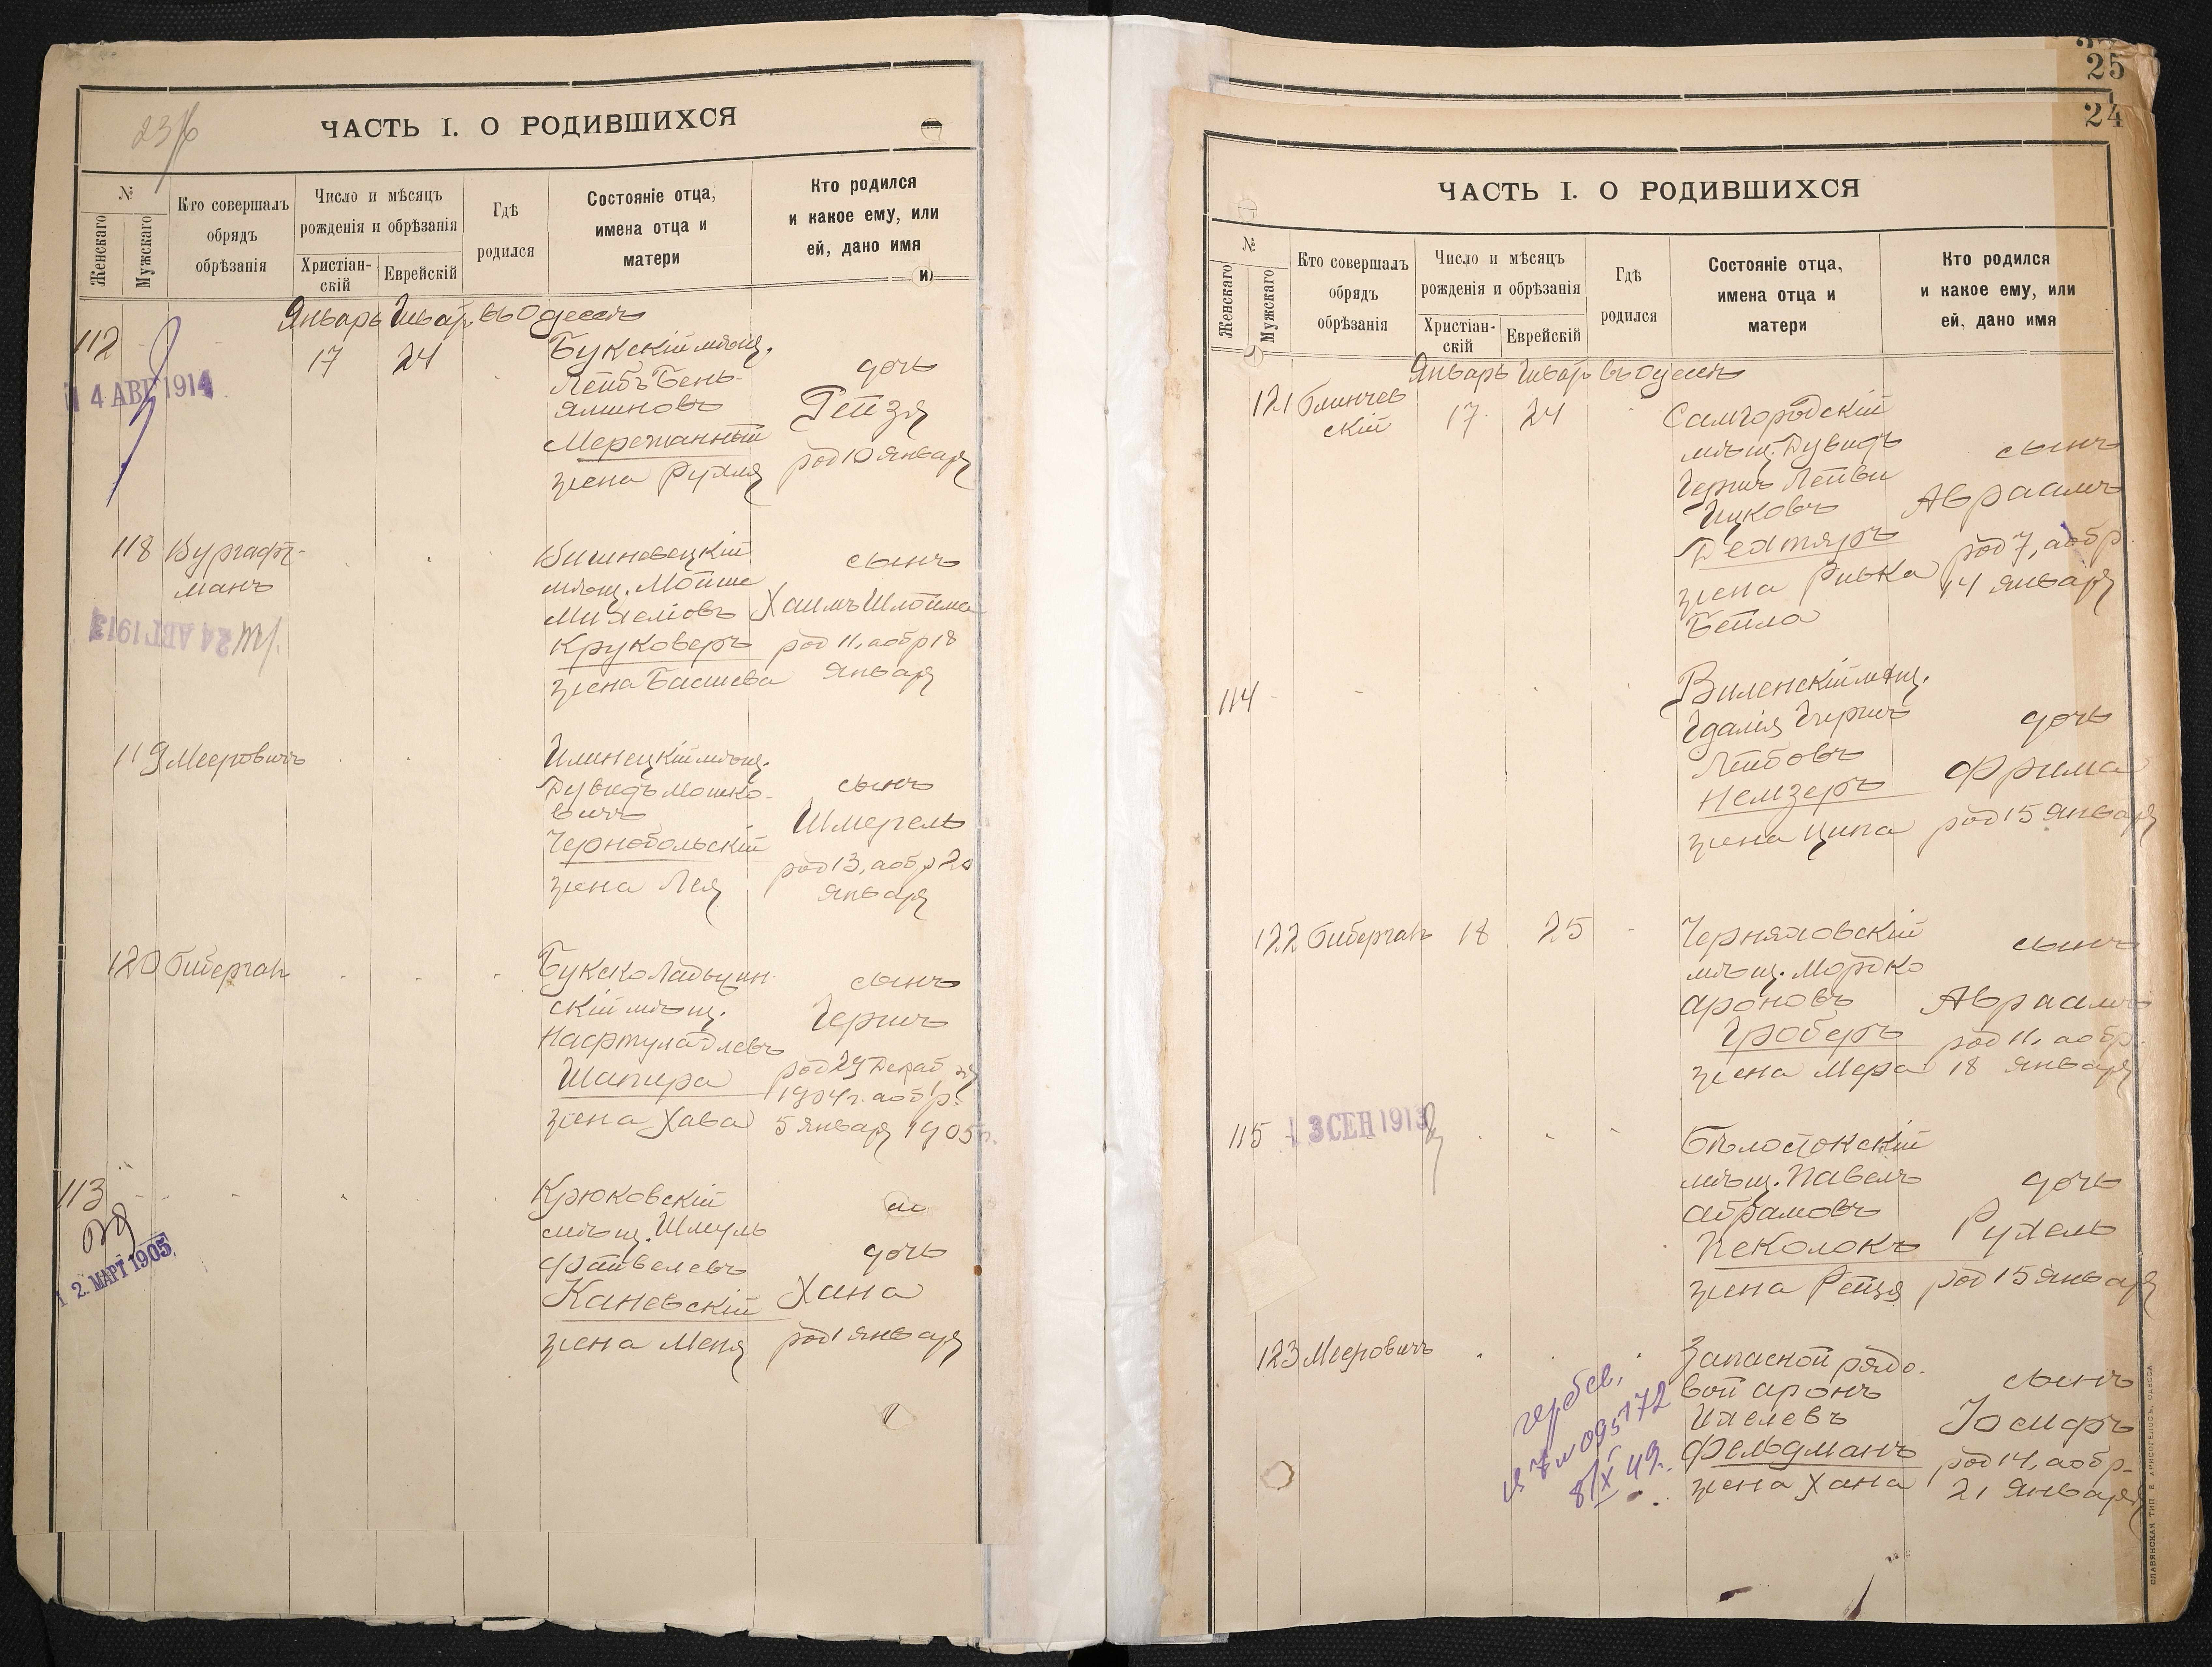 ЧАСТЬ I. О РОДИВШИХСЯ
№
Женскаго
Мужскаго
Кто совершалъ
обрядъ
обрѣзанія
Число и мѣсяцъ
рожденія и обрѣзанія
Христіан-
скій
Еврейскій
Гдѣ
родился
Состояніе отца,
имена отца и
матери
Кто родился
и какое ему, или
ей, дано имя
Январь Шват въ Одессѣ
112
17 24
Букскій мѣщ.
Лейбъ Бень-
яминовъ
Мережанный
жена Рухля
дочь
Рейзя
род 10 января
4 АВГ 1914
118 Вургафт-
манъ
Вишновецкій
мѣщ. Мойше
Михелевъ
Круковеръ
жена Басшева
сынъ
Хаимъ Шлойма
род 11, а обр 18
января
24 АВГ 1913
119 Мееровичъ
Илинецкій мѣщ.
Дувидъ Мошко-
вичъ
Чернобольскій
жена Лея
сынъ
Шмерель
род 13, а обр 20
января
120 Бибергал
Букско Ладыжин
скій мѣщ.
Нафтула Длевъ
Шапира
жена Хава
сынъ
Герш
род 29 Декаб
1904 г. а обр.
5 января 1905 г.
113
Крюковскій
мѣщ. Шмуль
Файвелевъ
Каневскій
жена Меня
дочь
Хана
род 1 января
12. МАРТ 1905
25
24
ЧАСТЬ I. О РОДИВШИХСЯ
№
Женскаго
Мужскаго
Кто совершалъ
обрядъ
обрѣзанія
Число и мѣсяцъ
рожденія и обрѣзанія
Христіан-
скій
Еврейскій
Гдѣ
родился
Состояніе отца,
имена отца и
матери
Кто родился
и какое ему, или
ей, дано имя
Январь Шват въ Одессѣ
121 Блинчев
скій
17 24
Самгородскій
мѣщ. Дувидъ
Гершъ Лейви
Ицковъ
Дехтяръ
жена Ривка
Бейла
сынъ
Авраамъ
род 7, а обр
14 января
114
Виленскій мѣщ.
Гдалія Гирш
Лейбовъ
Немзеръ
жена Ципа
дочь
Фрима
род 15 января
122 Бибергал 18 25
Черняховскій
мѣщ. Мордко
Ароновъ
Гроберъ
жена Мера
сынъ
Авраамъ
род 11, а обр.
18 января
115
3 СЕН 1913
Бѣлостокскій
мѣщ. Павелъ
Абрамовъ
Пеколокъ
жена Рейзя
дочь
Рухель
род 15 января
123 Мееровичъ
Запасной рядо-
вой Аронъ
Ихелевъ
Фельдманъ
жена Хана
сынъ
Іосифъ
род 14, а обр.
21 января
095172
8/X 49.
СЛАВЯНСКАЯ ТИП. Е. ХРИСОГЕЛОСЪ, ОДЕССА